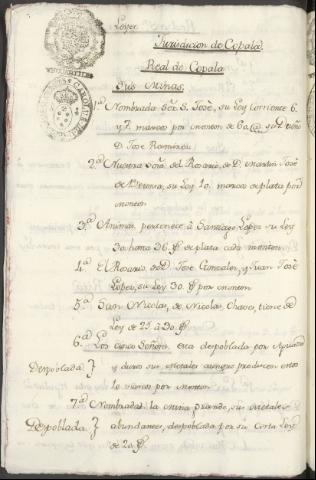 Leyes
Jurisdicion de Copala
Real de Copala
Sus Minas.
1ª Nombrada Sor. S. José, su Ley corriente 6.
y 7. marcos por monton de 60 @ su Dueño
D. Jose Ramirez
2ª Nuestra Señª del Rosario, de D. Martin José
de su Ley 10. marcos de plata por
monton
3ª Animas, pertenece à Santiago Lopez su Ley
30. hasta 36. ps. de plata cada monton
4ª El Rosario, de D. Jose Gonzales, y Juan José
Lopez, su Ley 30. ps. por monton
5ª San Nicolas, de Nicolas Chaves, tiene de
Ley de 25 à 30. ps.
6ª Los cinco Señores, esta despoblada por Aguada
Despoblada } y duros sus metales aunque producen otros
10 marcos por monton
7ª Nombrada la mina grande, sus metales
Despoblada } abundantes, despoblada por su corta Ley
de 20. ps.